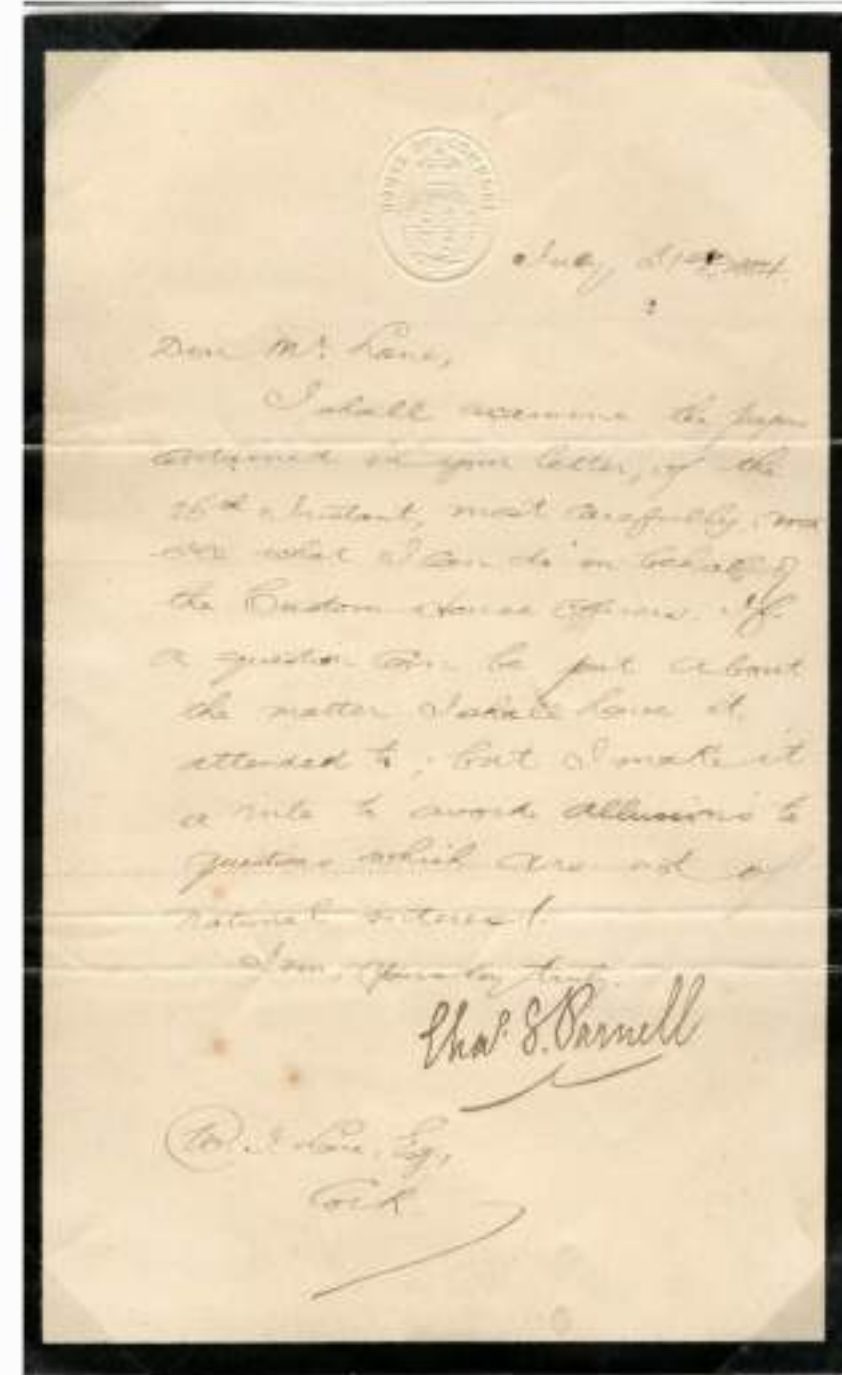 HOUSE OF COMMONS
July 21st
Dear Mr. Lane,
I shall examine the papers
contained in your letter, of the
Instant, most carefully, and
see what I can do on behalf of
the Custom House Officers. If
a question can be put about
the matter I shall have it
attended to, but I make it
a rule to avoid allusions to
questions which are not of
national interest.
I am, yours very truly
Chas. S. Parnell
Lane, Esq,
Cork